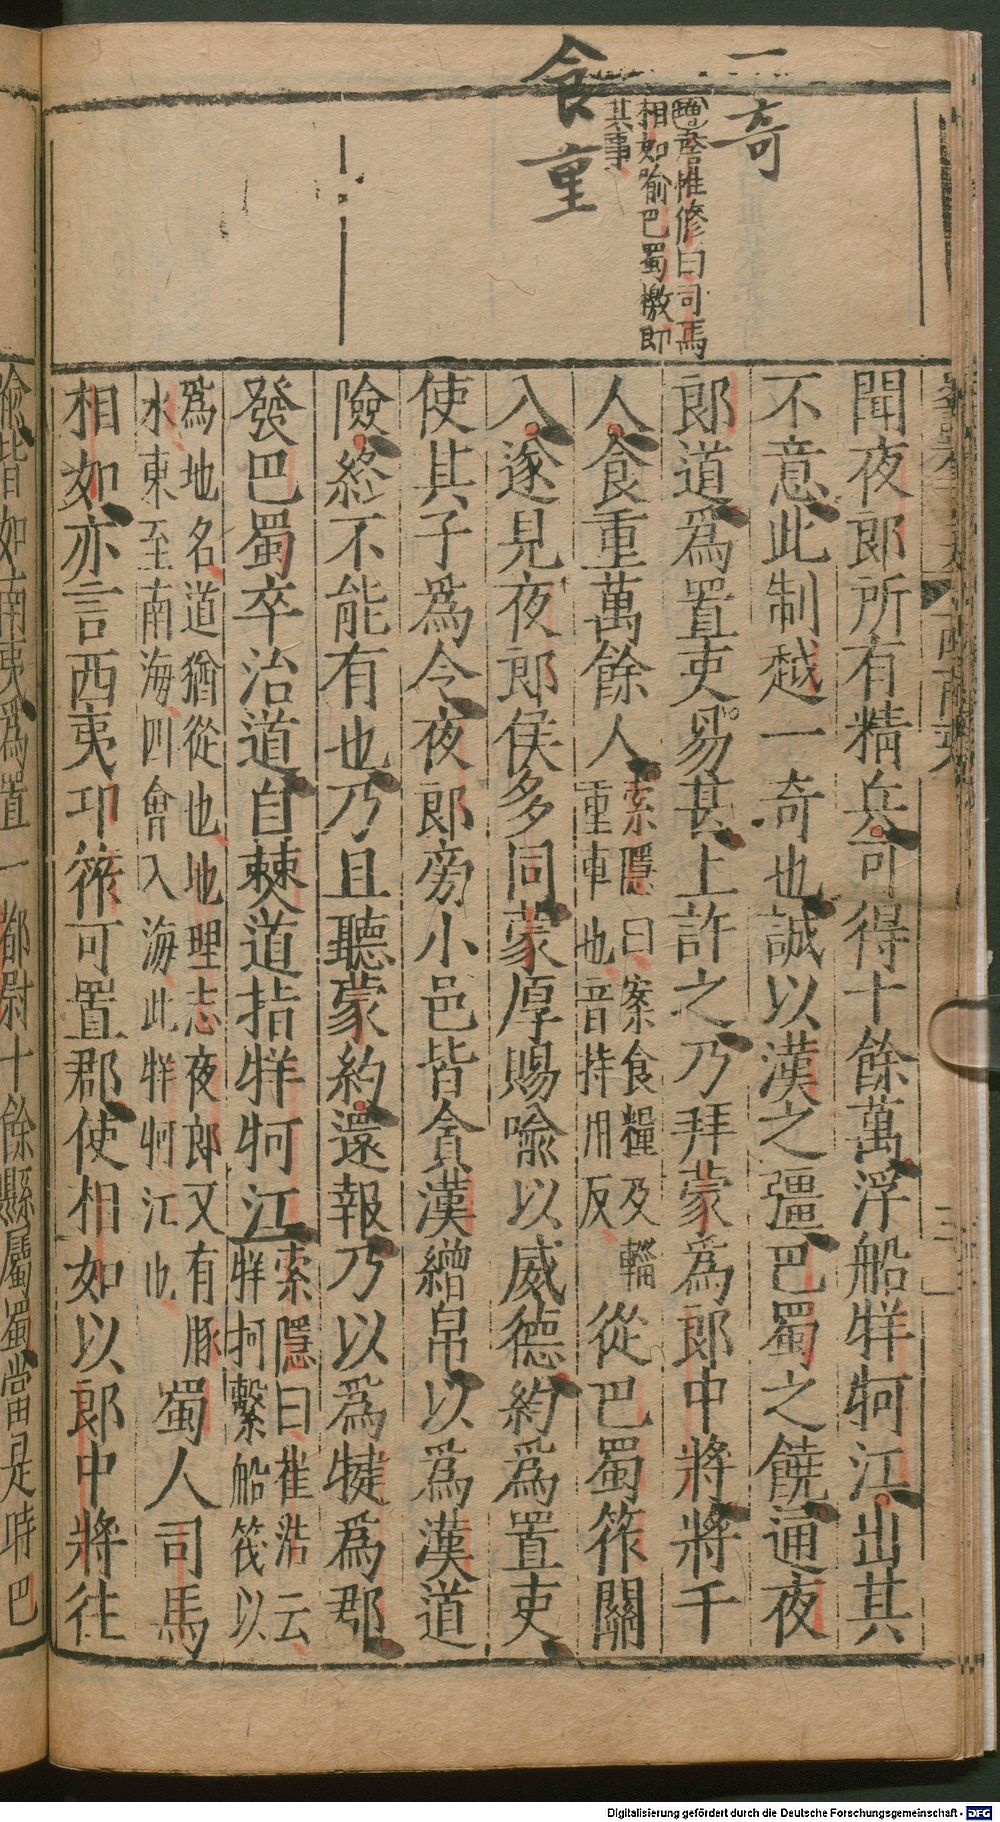 一奇
食重
曰司馬
相如喻巴蜀檄即
其事
聞夜郎所有精兵可得十餘萬浮船牂牁江出其
不意此制越一奇也誠以漢之彊巴蜀之饒通夜
郎道爲置吏易甚上許之乃拜蒙爲郎中將將千
人食重萬餘人
索隱曰案食糧及輜
重車也音持用反
從巴蜀筰關
入遂見夜郎侯多同蒙厚賜喻以威德約爲置吏
使其子爲令夜郎旁小邑皆貪漢繒帛以爲漢道
險終不能有也乃且聽蒙約還報乃以爲犍爲郡
發巴蜀卒治道自僰道指牂牁江
索隱曰崔浩云
牂柯繫船筏以
爲地名道猶從也地理志夜郎又有豚
水東至南海四會入海此牂牁江也
蜀人司馬
相如亦言西夷邛筰可置郡使相如以郎中將往
喻皆如南夷爲置一都尉十餘縣屬蜀當是時巴
Digitalisierung gefördert durch die Deutsche Forschungsgemeinschaft - DFG